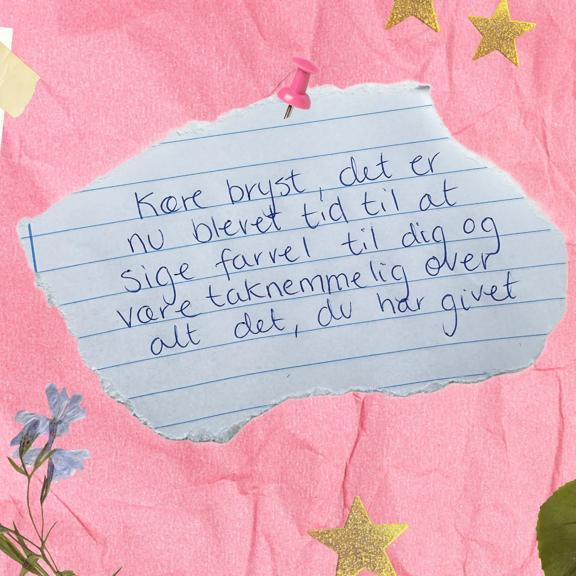 Kære bryst, det er
nu blevet tid til at
sige farvel til dig og
være taknemmelig over
alt det, du har givet